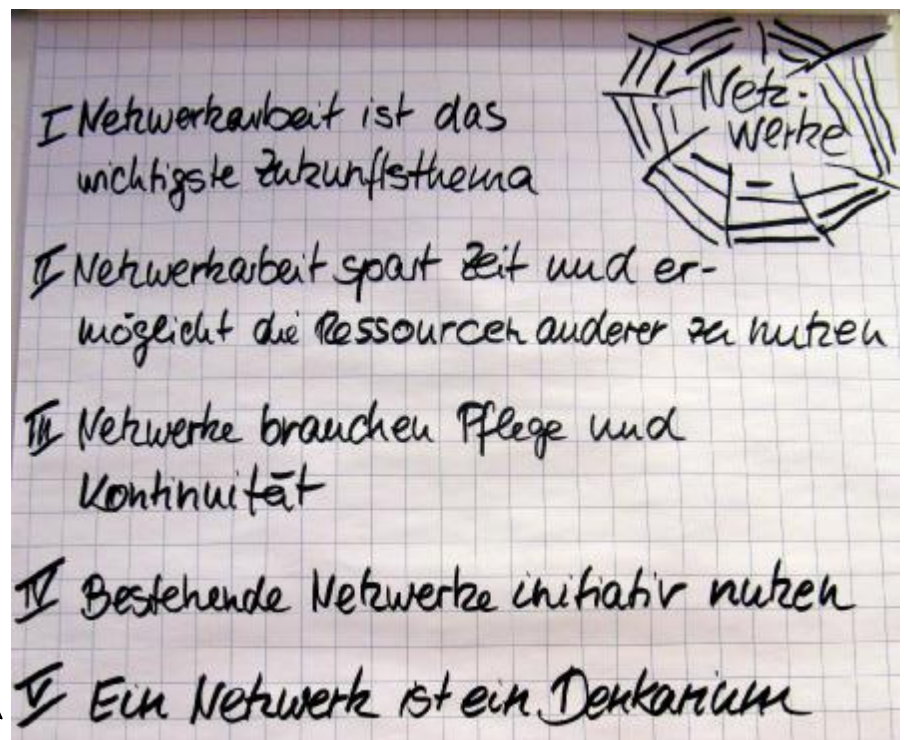 Netz-
werke
I Netzwerkarbeit ist das
wichtigste Zukunftsthema
II Netzwerkarbeit spart Zeit und er-
möglicht die Ressourcen anderer zu nutzen
III Netzwerke brauchen Pflege und
Kontinuität
IV Bestehende Netzwerke initiativ nutzen
V Ein Netzwerk ist ein Denkarium